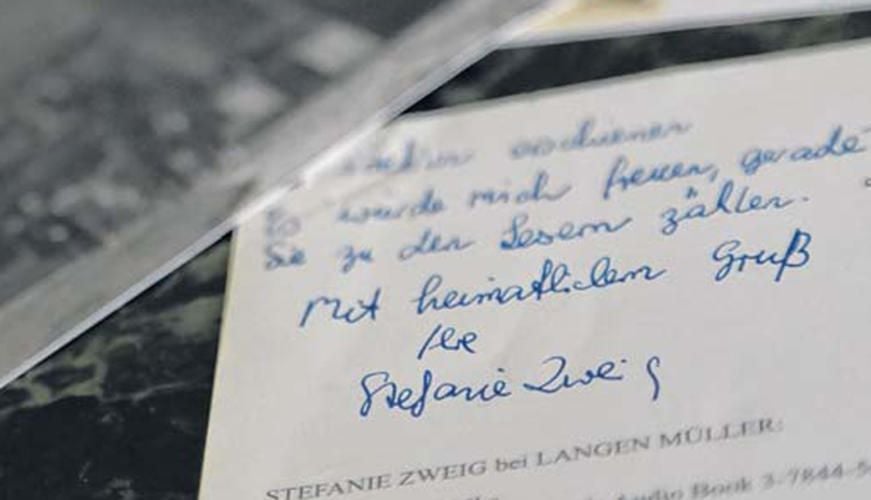 erschienen
Es würde mich freuen, gerade
Sie zu den Lesern zählen.
Mit heimatlichem Gruß
Ihre
Stefanie Zweig
STEFANIE ZWEIG bei LANGEN MÜLLER:
Audio Book 3-7844-5